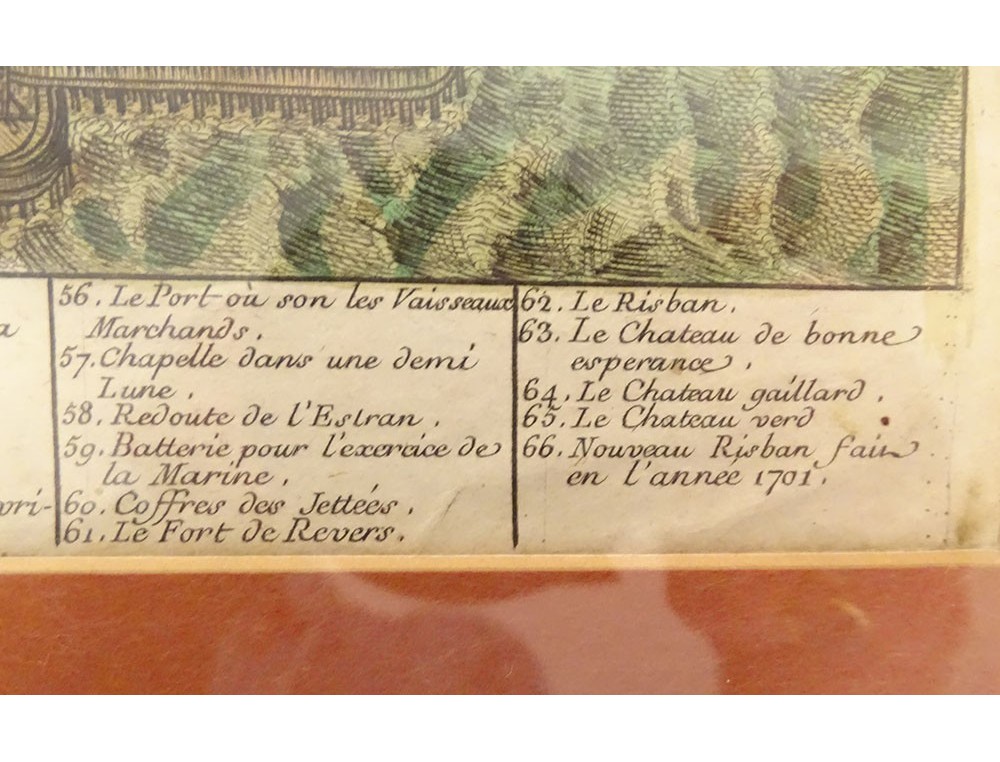 a
vri-
56. Le Port où son les Vaisseaux
Marchands.
57. Chapelle dans une demi
Lune.
58. Redoute de l'Estran.
59. Batterie pour l'exercice de
la Marine.
60. Coffres des Jettées.
61. Le Fort de Revers.
62. Le Risban.
63. Le Chateau de bonne
esperance.
64. Le Chateau gaillard.
65. Le Chateau verd
66. Nouveau Risban fait
en l'année 1701.